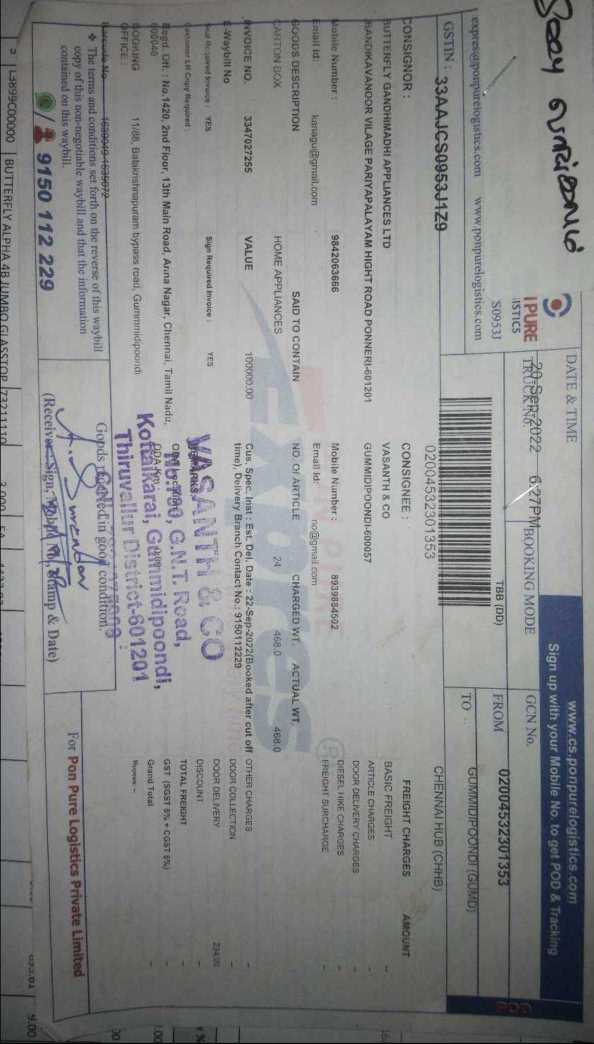 www.cs.ponpurelogistics.com
Sign up with your Mobile No. to get POD & Tracking
IPURE
ISTICS
S0953J
expres@ponpurelogistics.com www.ponpurelogistics.com
GSTIN : 33AAJCS0953J1Z9
DATE & TIME
20-Sep-2022 6:27PM
TRUCK No.
BOOKING MODE
TBB (DD)
GCN No.
02004532301353
FROM
GUMMIDIPOONDI (GUMD)
TO
CHENNAI HUB (CHHB)
02004532301353
CONSIGNOR :
BUTTERFLY GANDHIMADHI APPLIANCES LTD
BANDIKAVANOOR VILAGE PARIYAPALAYAM HIGHT ROAD PONNERI-601201
Mobile Number : 9842063666
Email Id: kanagu@gmail.com
CONSIGNEE :
VASANTH & CO
GUMMIDIPOONDI-600057
Mobile Number : 8939884502
Email Id: no@gmail.com
GOODS DESCRIPTION SAID TO CONTAIN NO. OF ARTICLE CHARGED WT. ACTUAL WT.
CARTON BOX HOME APPLIANCES 24 468.0 468.0
INVOICE NO. 3347027255 VALUE 100000.00
Cus. Spec. Inst : Est. Del. Date : 22-Sep-2022(Booked after cut off time), Delivery Branch Contact No.: 9150112229
E-Waybill No
Seal Required Invoice : YES Sign Required Invoice : YES
Customer LR Copy Required :
Regd. Off. : No.1420, 2nd Floor, 13th Main Road, Anna Nagar, Chennai, Tamil Nadu,
600040
BOOKING OFFICE : 11/88, Balakrishnapuram bypass road, Gummidipoondi
FREIGHT CHARGES AMOUNT
BASIC FREIGHT
ARTICLE CHARGES
DOOR DELIVERY CHARGES
DIESEL HIKE CHARGES
FREIGHT SURCHARGE -
OTHER CHARGES -
DOOR COLLECTION -
DOOR DELIVERY 234.00
DISCOUNT -
TOTAL FREIGHT -
GST (SGST 6% + CGST 6%) -
Grand Total -
Rupees –
Expres
VASANTH & CO
G.N.T. Road,
Kottaikarai, Gummidipoondi,
Thiruvallur District-601201
Barcode No 1639049-1639072
❖ The terms and conditions set forth on the reverse of this waybill
copy of this non-negotiable waybill and that the information
contained on this waybill.
9150 112 229
Goods Received in good condition
(Receiver Sign, Stamp & Date)
For Pon Pure Logistics Private Limited
L3899C00000 BUTTERFLY ALPHA 4B JUMBO GLASSTOP 7321110
9.00